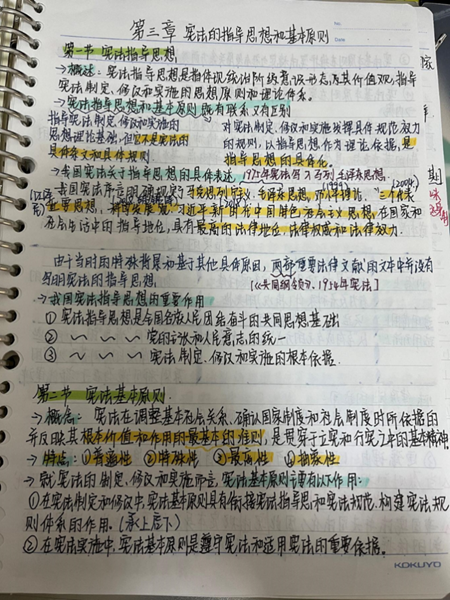 No.
Date
第三章 宪法的指导思想和基本原则
第一节 宪法指导思想
→概述:宪法指导思想是指体现统治阶级意识形态及其价值观,指导
宪法制定、修改和实施的思想原则和理论体系。
→宪法指导思想和基本原则既有联系又有区别
指导宪法制定、修改和实施的 对宪法制定、修改和实施发挥具体规范效力
思想理论基础,但它不是宪法的 的规则,以指导思想作为理论依据,是
具体条文和具体规则 指导思想的具体化。
→我国宪法关于指导思想的具体表述
→我国宪法序言明确规定了马克思列宁主义、毛泽东思想、邓小平理论、“三个代表”
(1999) (2004)
重要思想、科学发展观、习近平新时代中国特色社会主义思想,在国家和
社会生活中的指导地位,具有最高的法律地位、法律权威和法律效力。
由于当时的特殊背景和基于其他具体原因,两部重要法律文献的文本中并没有
写明宪法的指导思想. [《共同纲领》、1954年宪法]
→我国宪法指导思想的重要作用
① 宪法指导思想是全国各族人民团结奋斗的共同思想基础
② 〜 〜 〜 党的主张和人民意志的统一
③ 〜 〜 〜 宪法制定、修改和实施的根本依据.
第二节 宪法基本原则.
→概念:宪法在调整基本社会关系、确认国家制度和社会制度时所依据的
并反映其根本价值和作用的最基本的准则,是贯穿于立宪和行宪之中的基本精神
→特点:①普遍性 ②特殊性 ③最高性 ④抽象性
→就宪法的制定、修改和实施而言,宪法基本原则主要有以下作用:
①在宪法制定和修改中,宪法基本原则具有衔接宪法指导思想和宪法规范、构建宪法规
则体系的作用.(承上启下)
②在宪法实施中,宪法基本原则是遵守宪法和适用宪法的重要依据。
KOKUYO